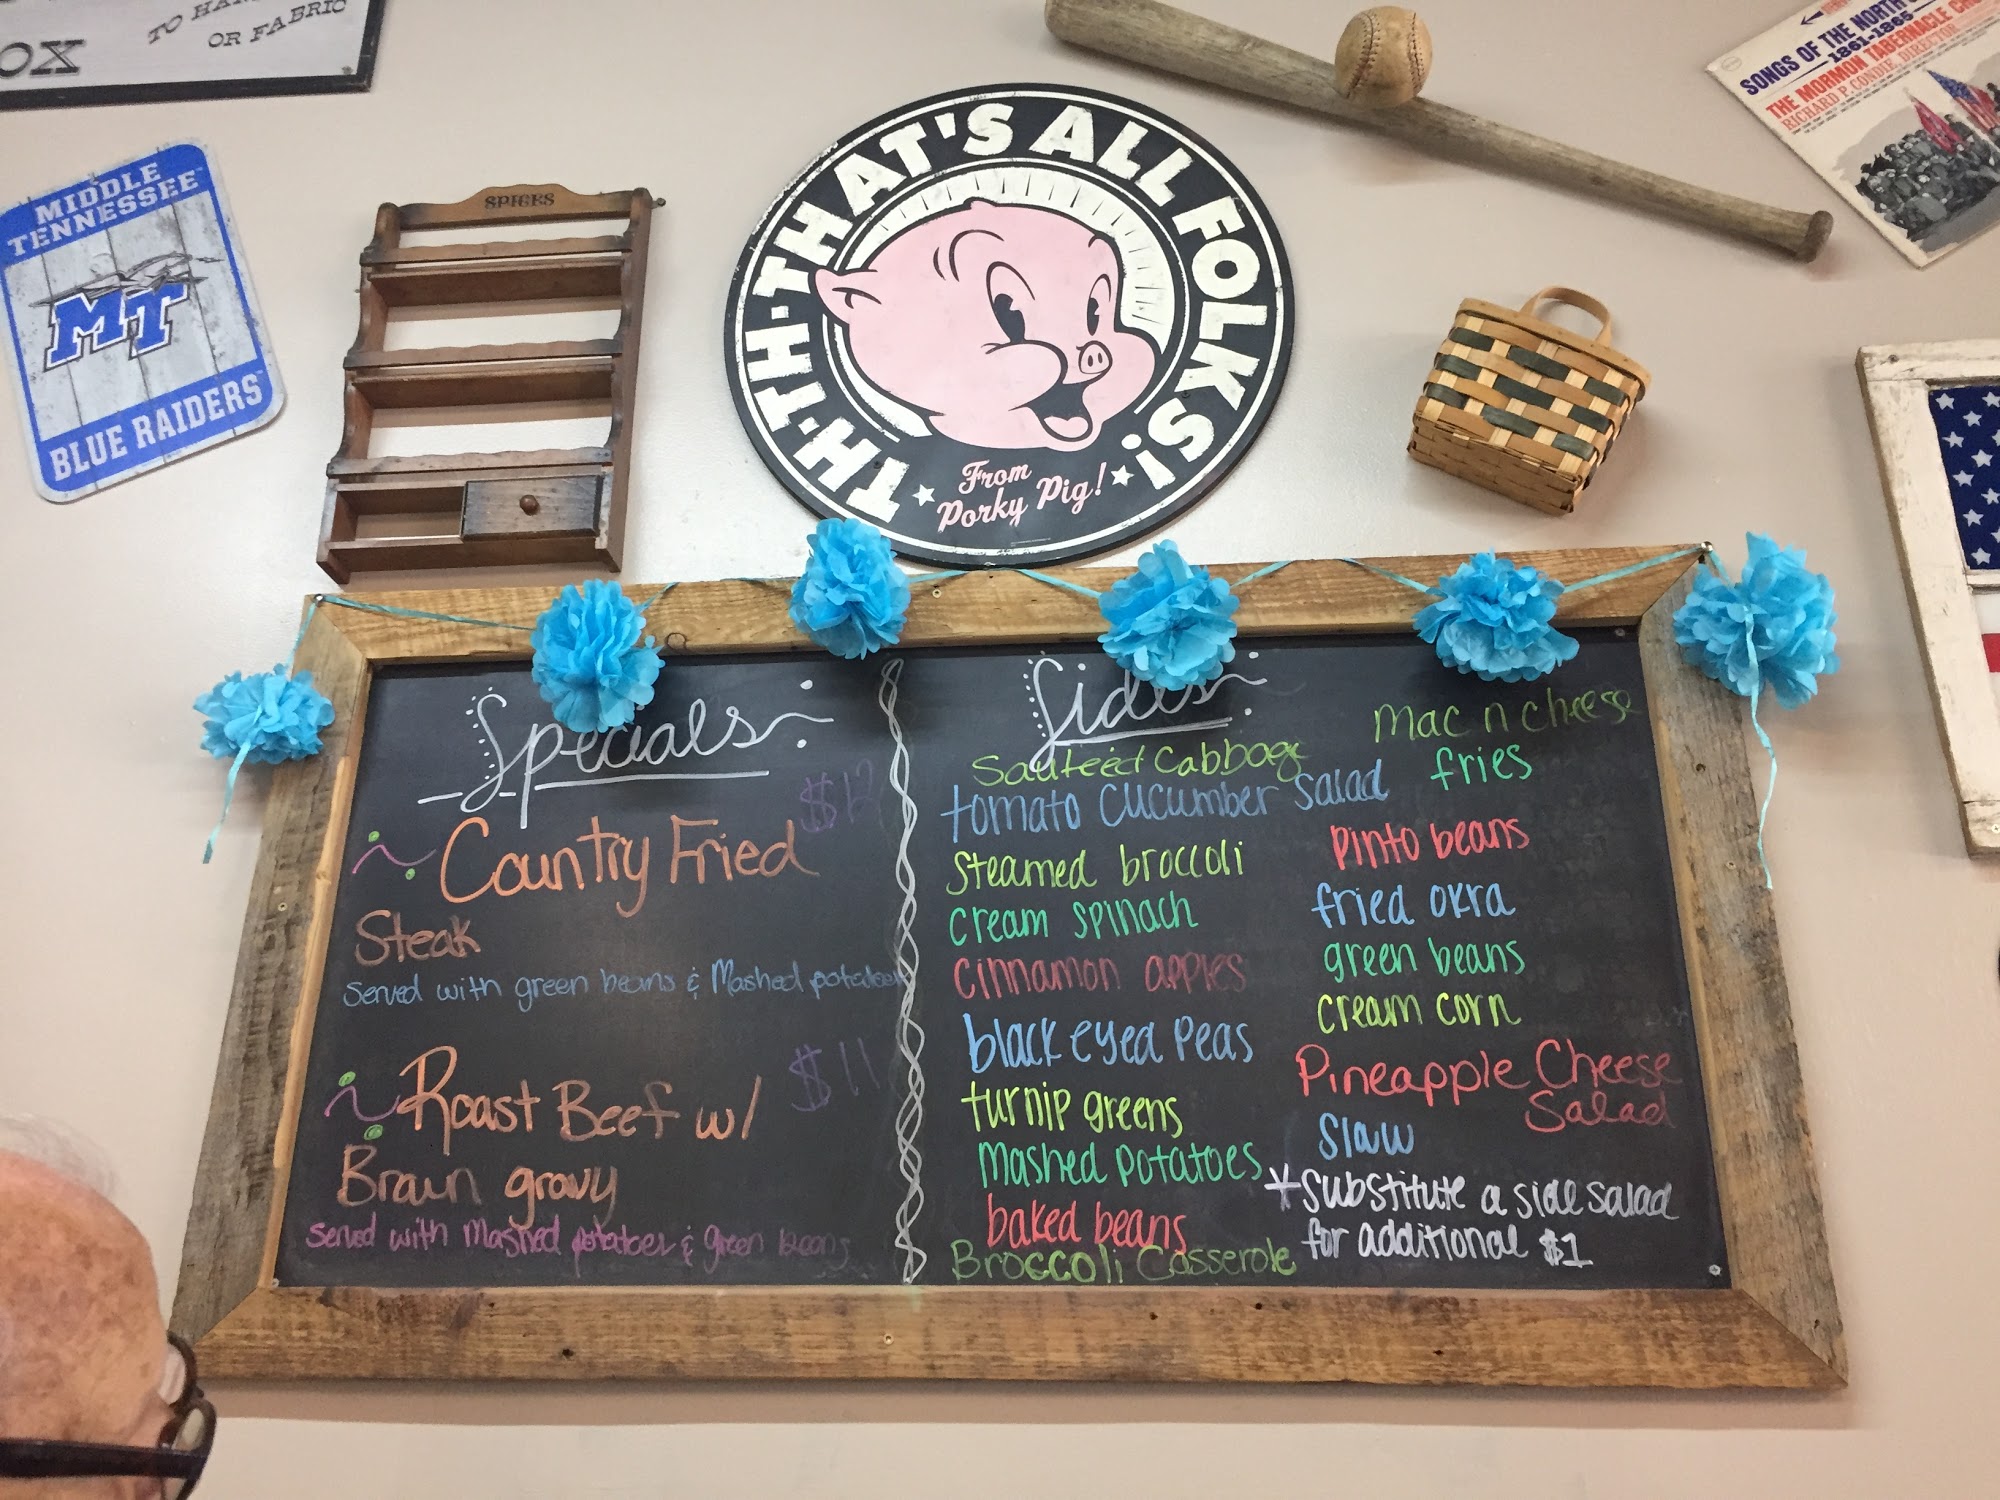 TO HAM
OR FABRIC
OX
SONGS OF THE NORTH
1861-1865
THE MORMON TABERNACLE
RICHARD P. CONDIE, DIRECTOR
MIDDLE
TENNESSEE
MT
BLUE RAIDERS
SPICES
TH-TH-THAT'S ALL FOLKS!
From
Porky Pig!
Specials
$12
Country Fried
Steak
Served with green beans & Mashed potatoes
$11
Roast Beef w/
Brown gravy
Served with Mashed potatoes & green beans
Sides
Sauteed Cabbage
tomato cucumber salad
Steamed broccoli
cream spinach
cinnamon apples
black eyed peas
turnip greens
mashed potatoes
baked beans
Broccoli Casserole
Mac n cheese
fries
pinto beans
fried okra
green beans
cream corn
Pineapple Cheese
Salad
slaw
*Substitute a side salad
for additional $1